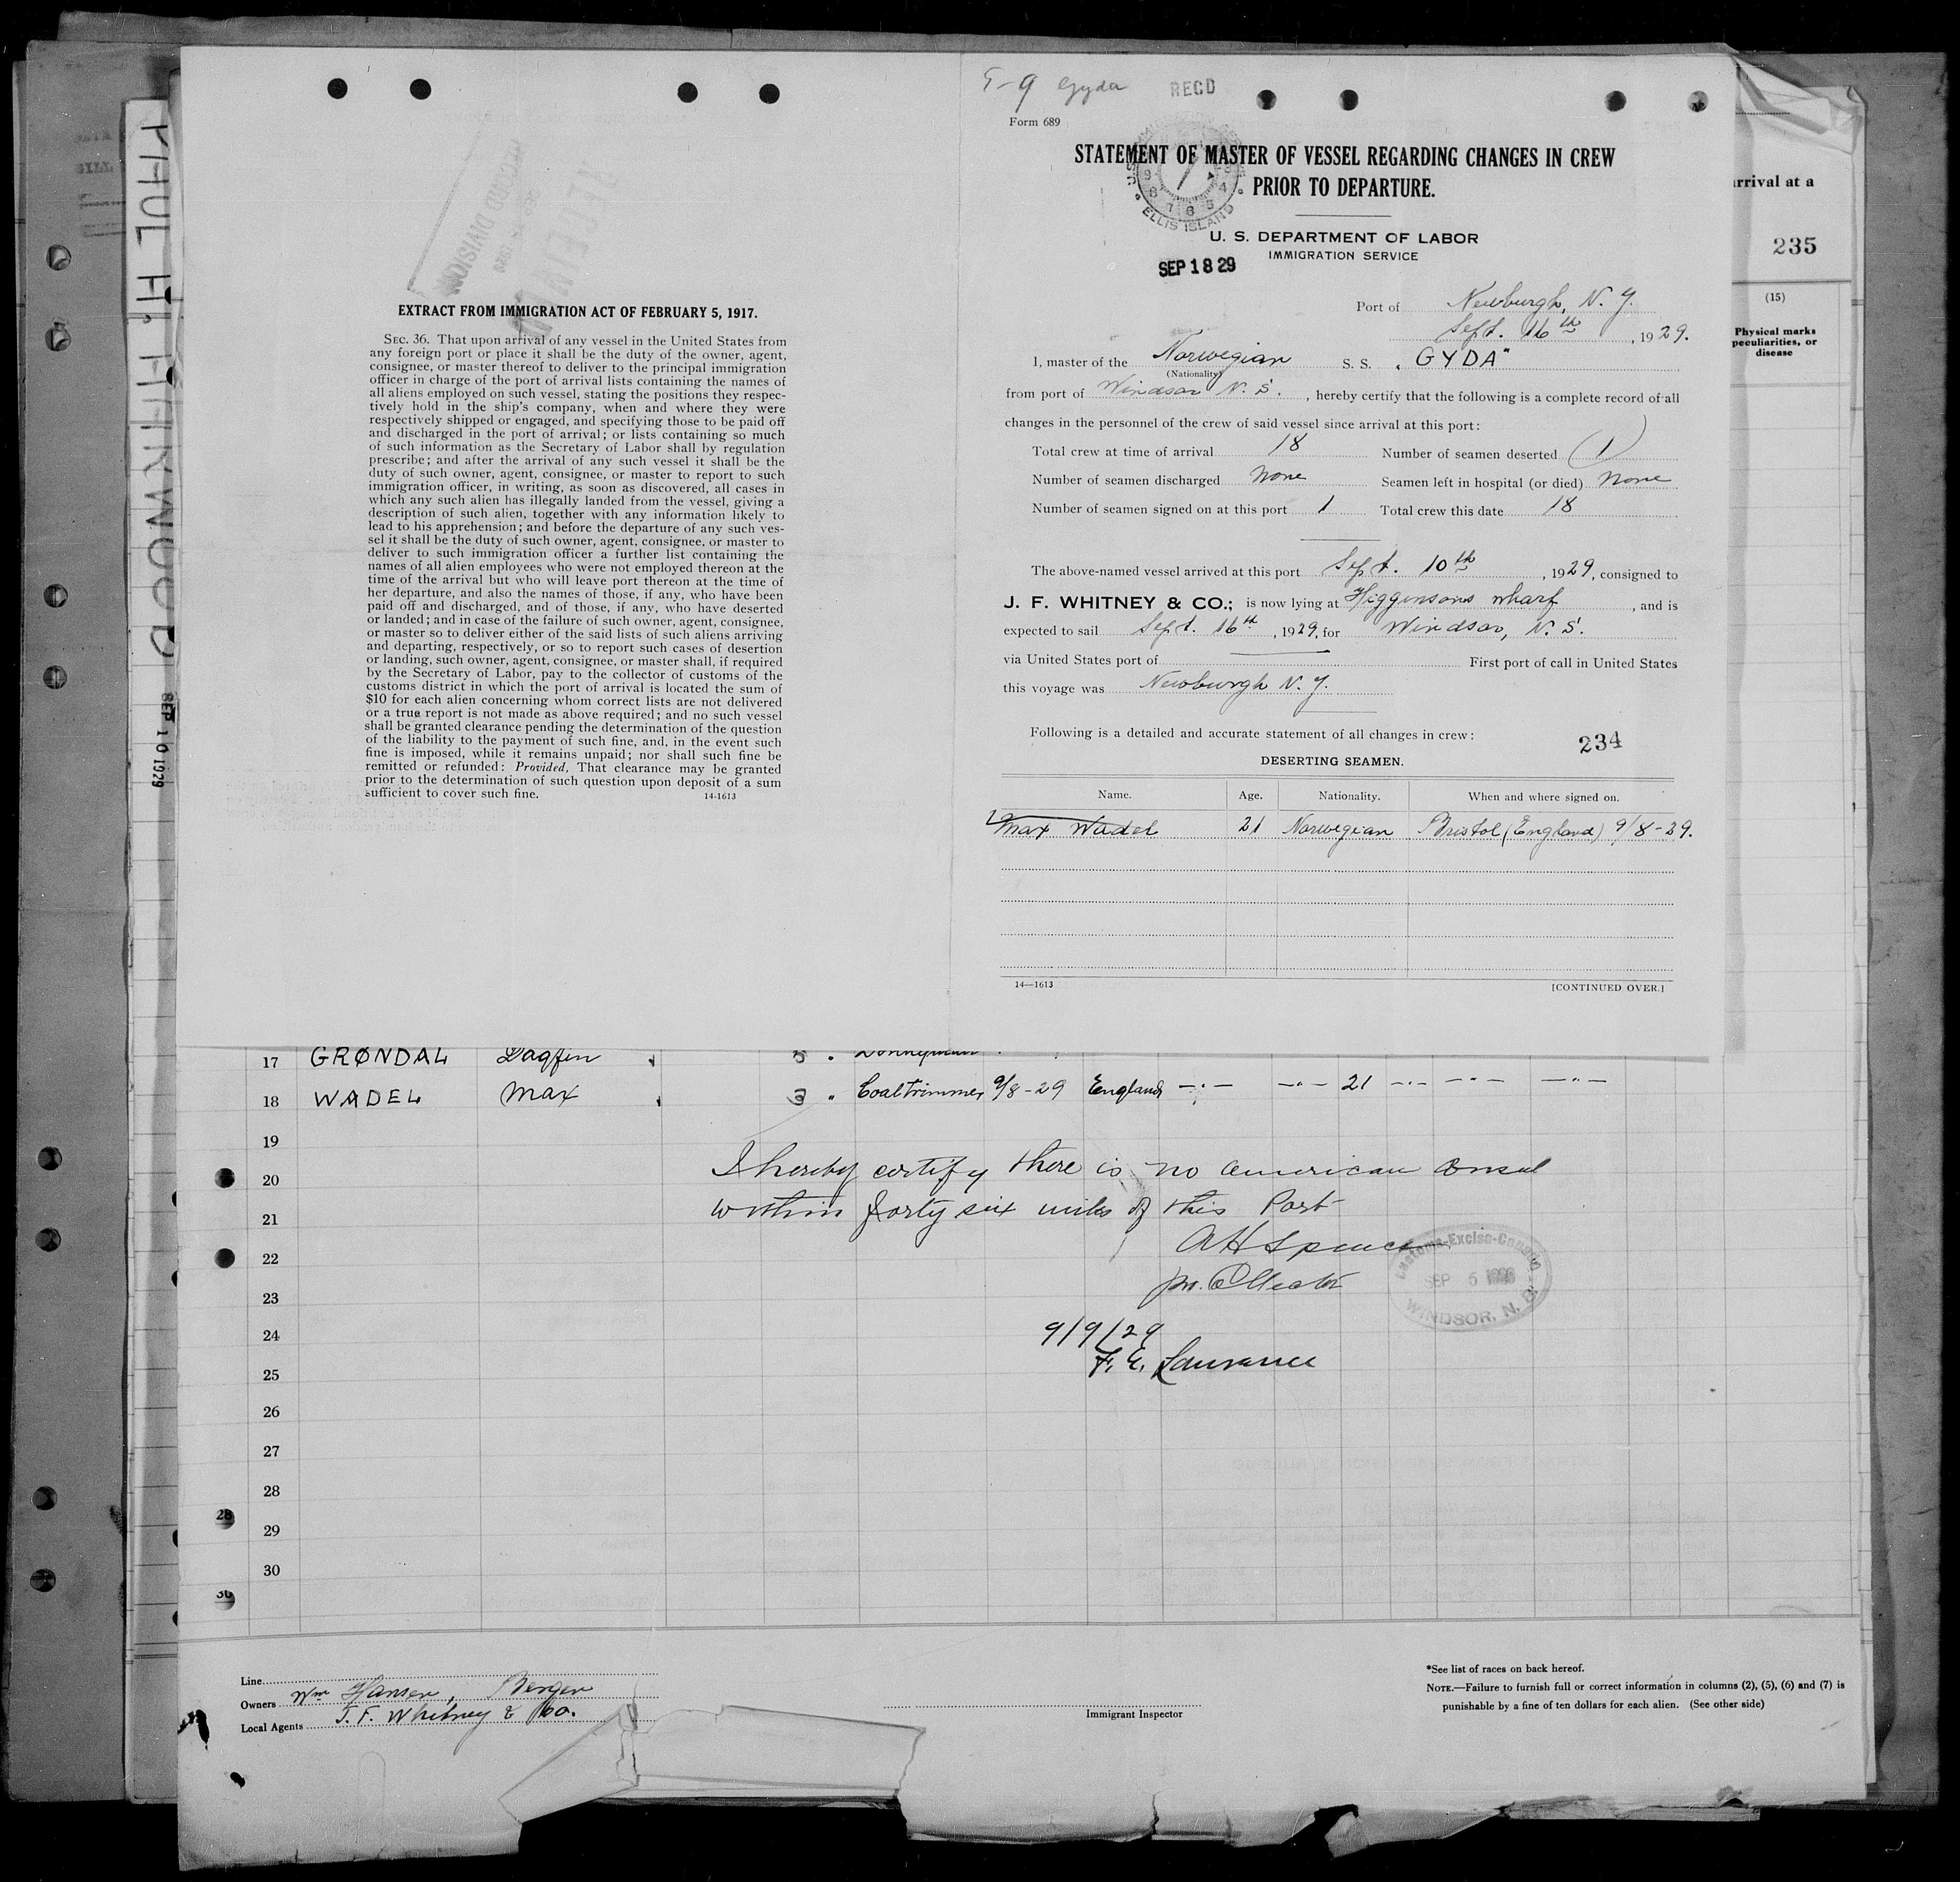 PAUL H. HARWOOD
SEP 10 1929
RECEIVED
RECORD DIVISION
EXTRACT FROM IMMIGRATION ACT OF FEBRUARY 5, 1917.
SEC. 36. That upon arrival of any vessel in the United States from
any foreign port or place it shall be the duty of the owner, agent,
consignee, or master thereof to deliver to the principal immigration
officer in charge of the port of arrival lists containing the names of
all aliens employed on such vessel, stating the positions they respec-
tively hold in the ship's company, when and where they were
respectively shipped or engaged, and specifying those to be paid off
and discharged in the port of arrival; or lists containing so much
of such information as the Secretary of Labor shall by regulation
prescribe; and after the arrival of any such vessel it shall be the
duty of such owner, agent, consignee, or master to report to such
immigration officer, in writing, as soon as discovered, all cases in
which any such alien has illegally landed from the vessel, giving a
description of such alien, together with any information likely to
lead to his apprehension; and before the departure of any such ves-
sel it shall be the duty of such owner, agent, consignee, or master to
deliver to such immigration officer a further list containing the
names of all alien employees who were not employed thereon at the
time of the arrival but who will leave port thereon at the time of
her departure, and also the names of those, if any, who have been
paid off and discharged, and of those, if any, who have deserted
or landed; and in case of the failure of such owner, agent, consignee,
or master so to deliver either of the said lists of such aliens arriving
and departing, respectively, or so to report such cases of desertion
or landing, such owner, agent, consignee, or master shall, if required
by the Secretary of Labor, pay to the collector of customs of the
customs district in which the port of arrival is located the sum of
$10 for each alien concerning whom correct lists are not delivered
or a true report is not made as above required; and no such vessel
shall be granted clearance pending the determination of the question
of the liability to the payment of such fine, and, in the event such
fine is imposed, while it remains unpaid; nor shall such fine be
remitted or refunded: Provided, That clearance may be granted
prior to the determination of such question upon deposit of a sum
sufficient to cover such fine. 14-1613
T-9 Gyda RECD
Form 689
STATEMENT OF MASTER OF VESSEL REGARDING CHANGES IN CREW
PRIOR TO DEPARTURE.
ELLIS ISLAND
U. S. DEPARTMENT OF LABOR
IMMIGRATION SERVICE
SEP 18 29
Port of Newburgh, N. Y.
Sept. 16th, 1929.
I, master of the Norwegian S. S. "GYDA"
(Nationality)
from port of Windsor N. S., hereby certify that the following is a complete record of all
changes in the personnel of the crew of said vessel since arrival at this port:
Total crew at time of arrival 18 Number of seamen deserted (1)
Number of seamen discharged none Seamen left in hospital (or died) none
Number of seamen signed on at this port 1 Total crew this date 18
The above-named vessel arrived at this port Sept. 10th, 1929, consigned to
J. F. WHITNEY & CO.; is now lying at Higginsons wharf, and is
expected to sail Sept. 16th, 1929, for Windsor, N. S.
via United States port of First port of call in United States
this voyage was Newburgh N. Y.
Following is a detailed and accurate statement of all changes in crew:
234
DESERTING SEAMEN.
Name. Age. Nationality. When and where signed on.
Max Wadel 21 Norwegian Bristol (England) 9/8-29.
14—1613 [CONTINUED OVER.]
arrival at a
235
(15)
Physical marks
peculiarities, or
disease
17 GRØNDAL Dagfin 5 " Donkeyman
18 WADEL Max 3 " Coaltrimmer 9/8-29 England -"- -"- 21 -"- -"- -"-
19
20 I hereby certify there is no american Consul
21 within forty six miles of this Port
22 AH Spence
23 pr. Collector
Customs-Excise-Canada
SEP 5
WINDSOR, N. S.
24 9/9/29
25 F. E. Lawrance
26
27
28
29
30
28
30
Line
Owners Wm Hansen, Bergen
Local Agents J. F. Whitney & Co.
Immigrant Inspector
*See list of races on back hereof.
NOTE.—Failure to furnish full or correct information in columns (2), (5), (6) and (7) is
punishable by a fine of ten dollars for each alien. (See other side)